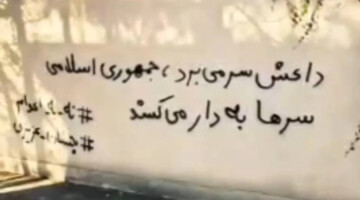 داعش سر می برد، جمهوری اسلامی
سرها به دار می کشد
#نه_به_اعدام